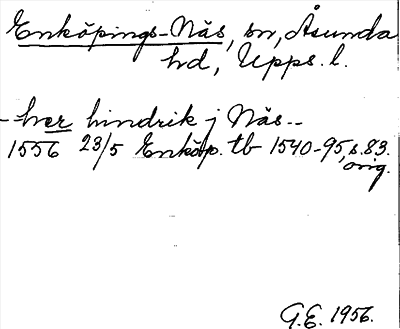 Enköpings-Näs, sn, Åsunda
hd, Upps. l.
- her hindrik j Näs--
1556 23/5 Enköp. tb 1540-95, s. 83.
orig.
G.E. 1956.